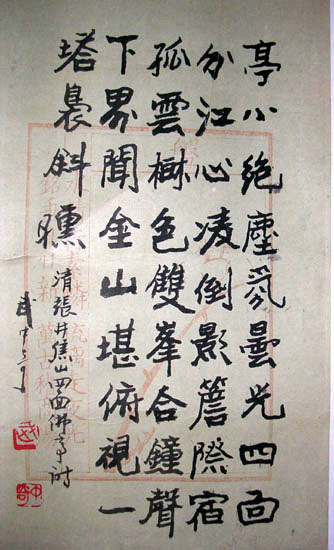 亭小絕塵氛曇光四面
分江心凌倒影簷際宿
孤雲樹色雙峯合鐘聲
下界聞金山堪俯視一
塔裊斜曛
清張井焦山四面佛亭詩
武中奇